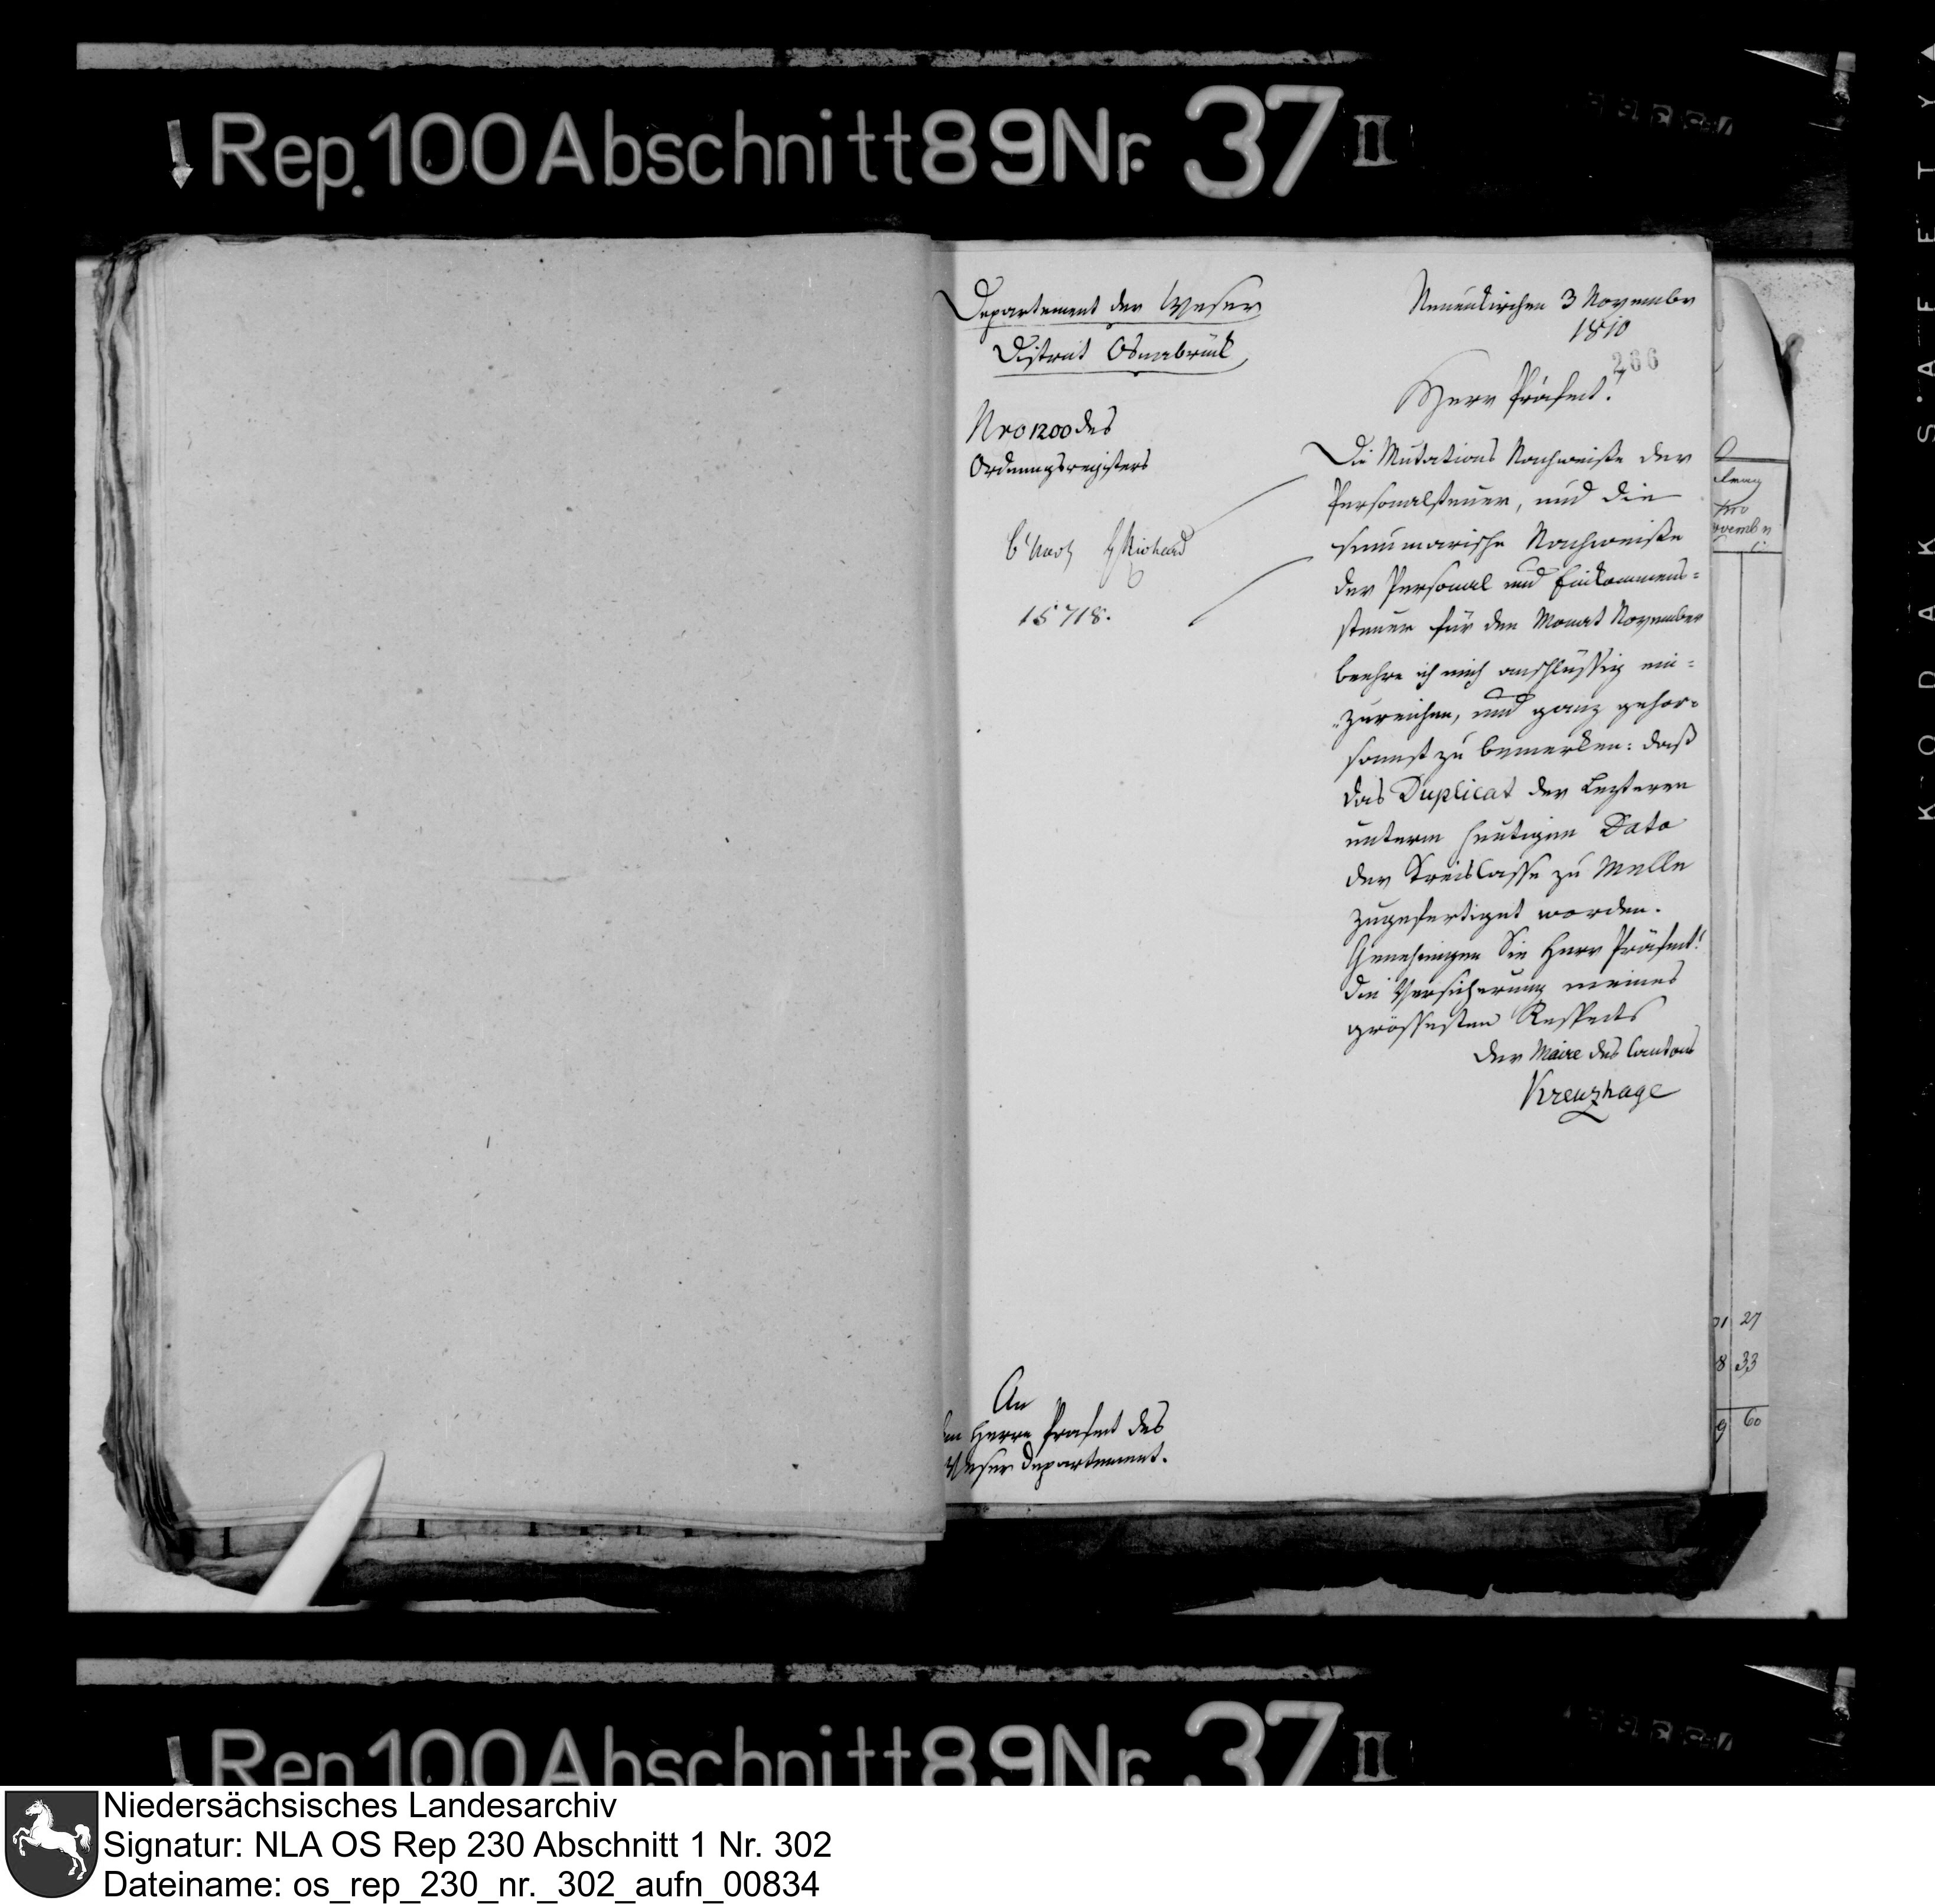 Rep. 100 Abschnitt 89 Nr. 37 II
Departement der Weser
District Osnabrück
Neuenkirchen 3 November
1810
266
Herr Präfect!
Nro 1200 des
Ordnungsregisters
15718.
Die Mutations Nachweiße der
Personalsteuer, und die
summarische Nachweiße
der Personal und Einkommens=
steuer für den Monat November
beehre ich mich anschlüssig ein=
zureichen, und ganz gehor=
samst zu bemerken: daß
das Duplicat der Lezteren
unterm heutigen Dato
der Kreiscasse zu Melle
zugefertiget worden.
Genehmigen Sie Herr Präfect!
die Versicherung meines
grössesten Respects
Der Maire des Cantons
Kreuzhage
An
den Herrn Präfect des
Weser Departement.
27
8 33
9 60
Rep. 100 Abschnitt 89 Nr. 37 II
KODAK SAFETY
Niedersächsisches Landesarchiv
Signatur: NLA OS Rep 230 Abschnitt 1 Nr. 302
Dateiname: os_rep_230_nr._302_aufn_00834